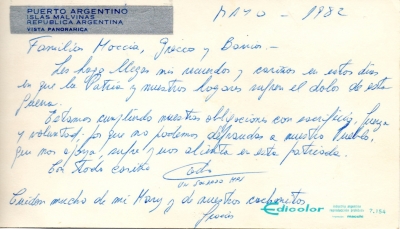 PUERTO ARGENTINO
ISLAS MALVINAS
REPUBLICA ARGENTINA
VISTA PANORAMICA
MAYO - 1982
Familias Moccia, Grecco y Barios.-
Les hago llegar mi recuerdo y cariños en estos dias
en que la Patria y nuestros hogares sufren el dolor de esta
guerra.
Estamos cumpliendo nuestras obligaciones con sacrificio, fuerza
y voluntad, porque no podemos defraudar a nuestro Pueblo,
que nos apoya, sufre y nos alienta en esta patriada.
Con todo cariño
Cuiden mucho de mi Mary y de nuestros cachorritos,
Edicolor
7.154